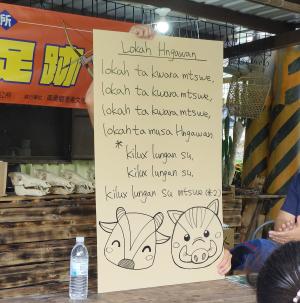 所
足跡
Lokah Hngawan
lokah ta kwara mtswe,
lokah ta kwara mtswe,
lokah ta kwara mtswe,
lokah ta musa Hngawan.
*kilux lungan su,
kilux lungan su,
kilux lungan su mtswe(*2)